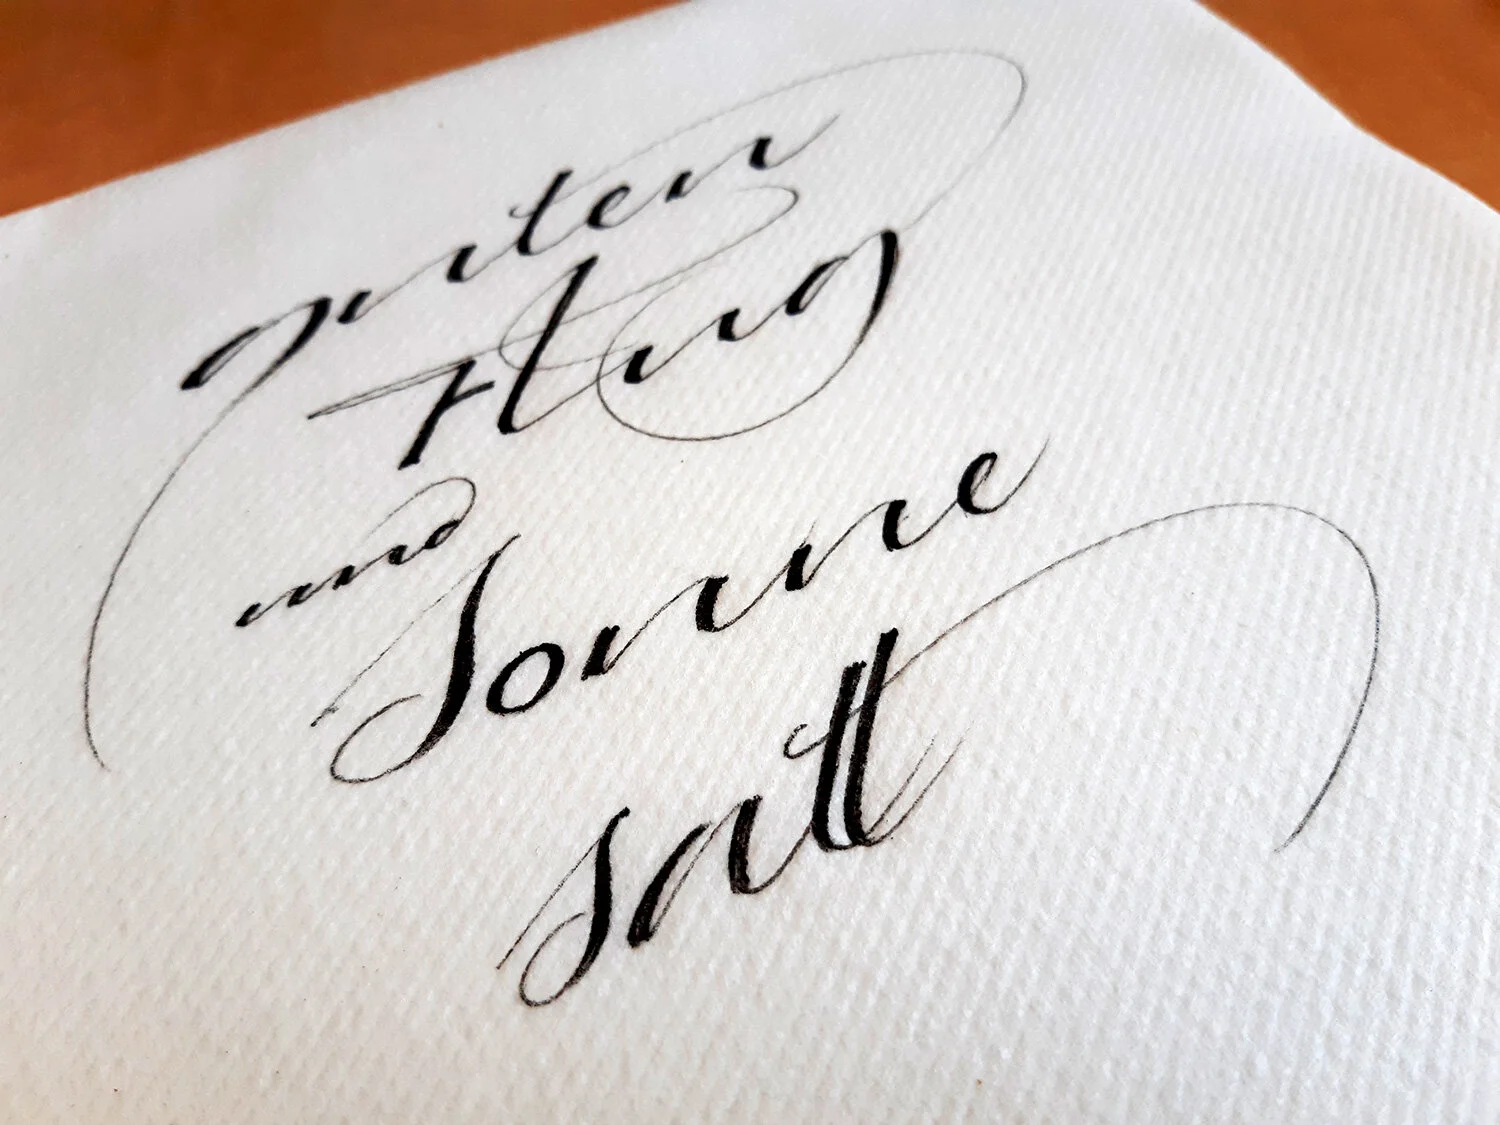 guten
Flug
und
Sonne
satt